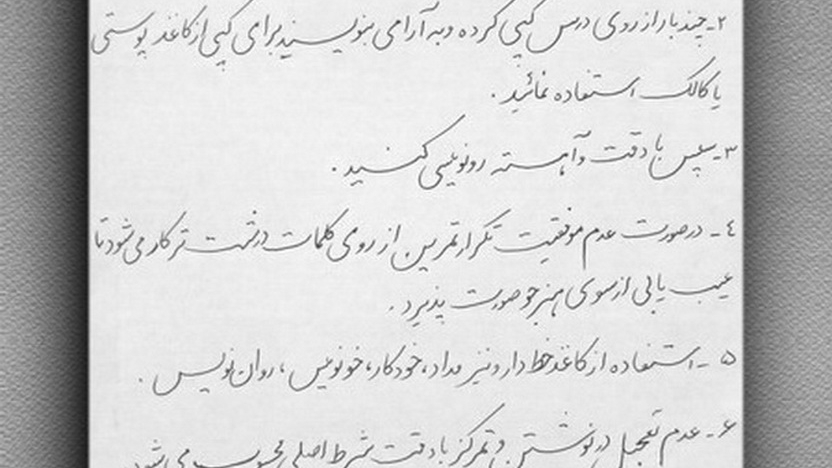 ۲- چند بار از روی درس کپی کرده و به آرامی بنویسید برای کپی از کاغذ پوستی
یا کالک استفاده نمائید .
۳- سپس با دقت و آهسته رونویسی کنید .
٤- درصورت عدم موفقیت تکرار تمرین از روی کلمات درشت تر کار می شود تا
عیب یابی از سوی هنرجو صورت پذیرد .
۵- استفاده از کاغذ خط دار و نیز مداد، خودکار، خودنویس، روان نویس .
۶- عدم تعجیل در نوشتن و تمرکز با دقت شرط اصلی محسوب می شود